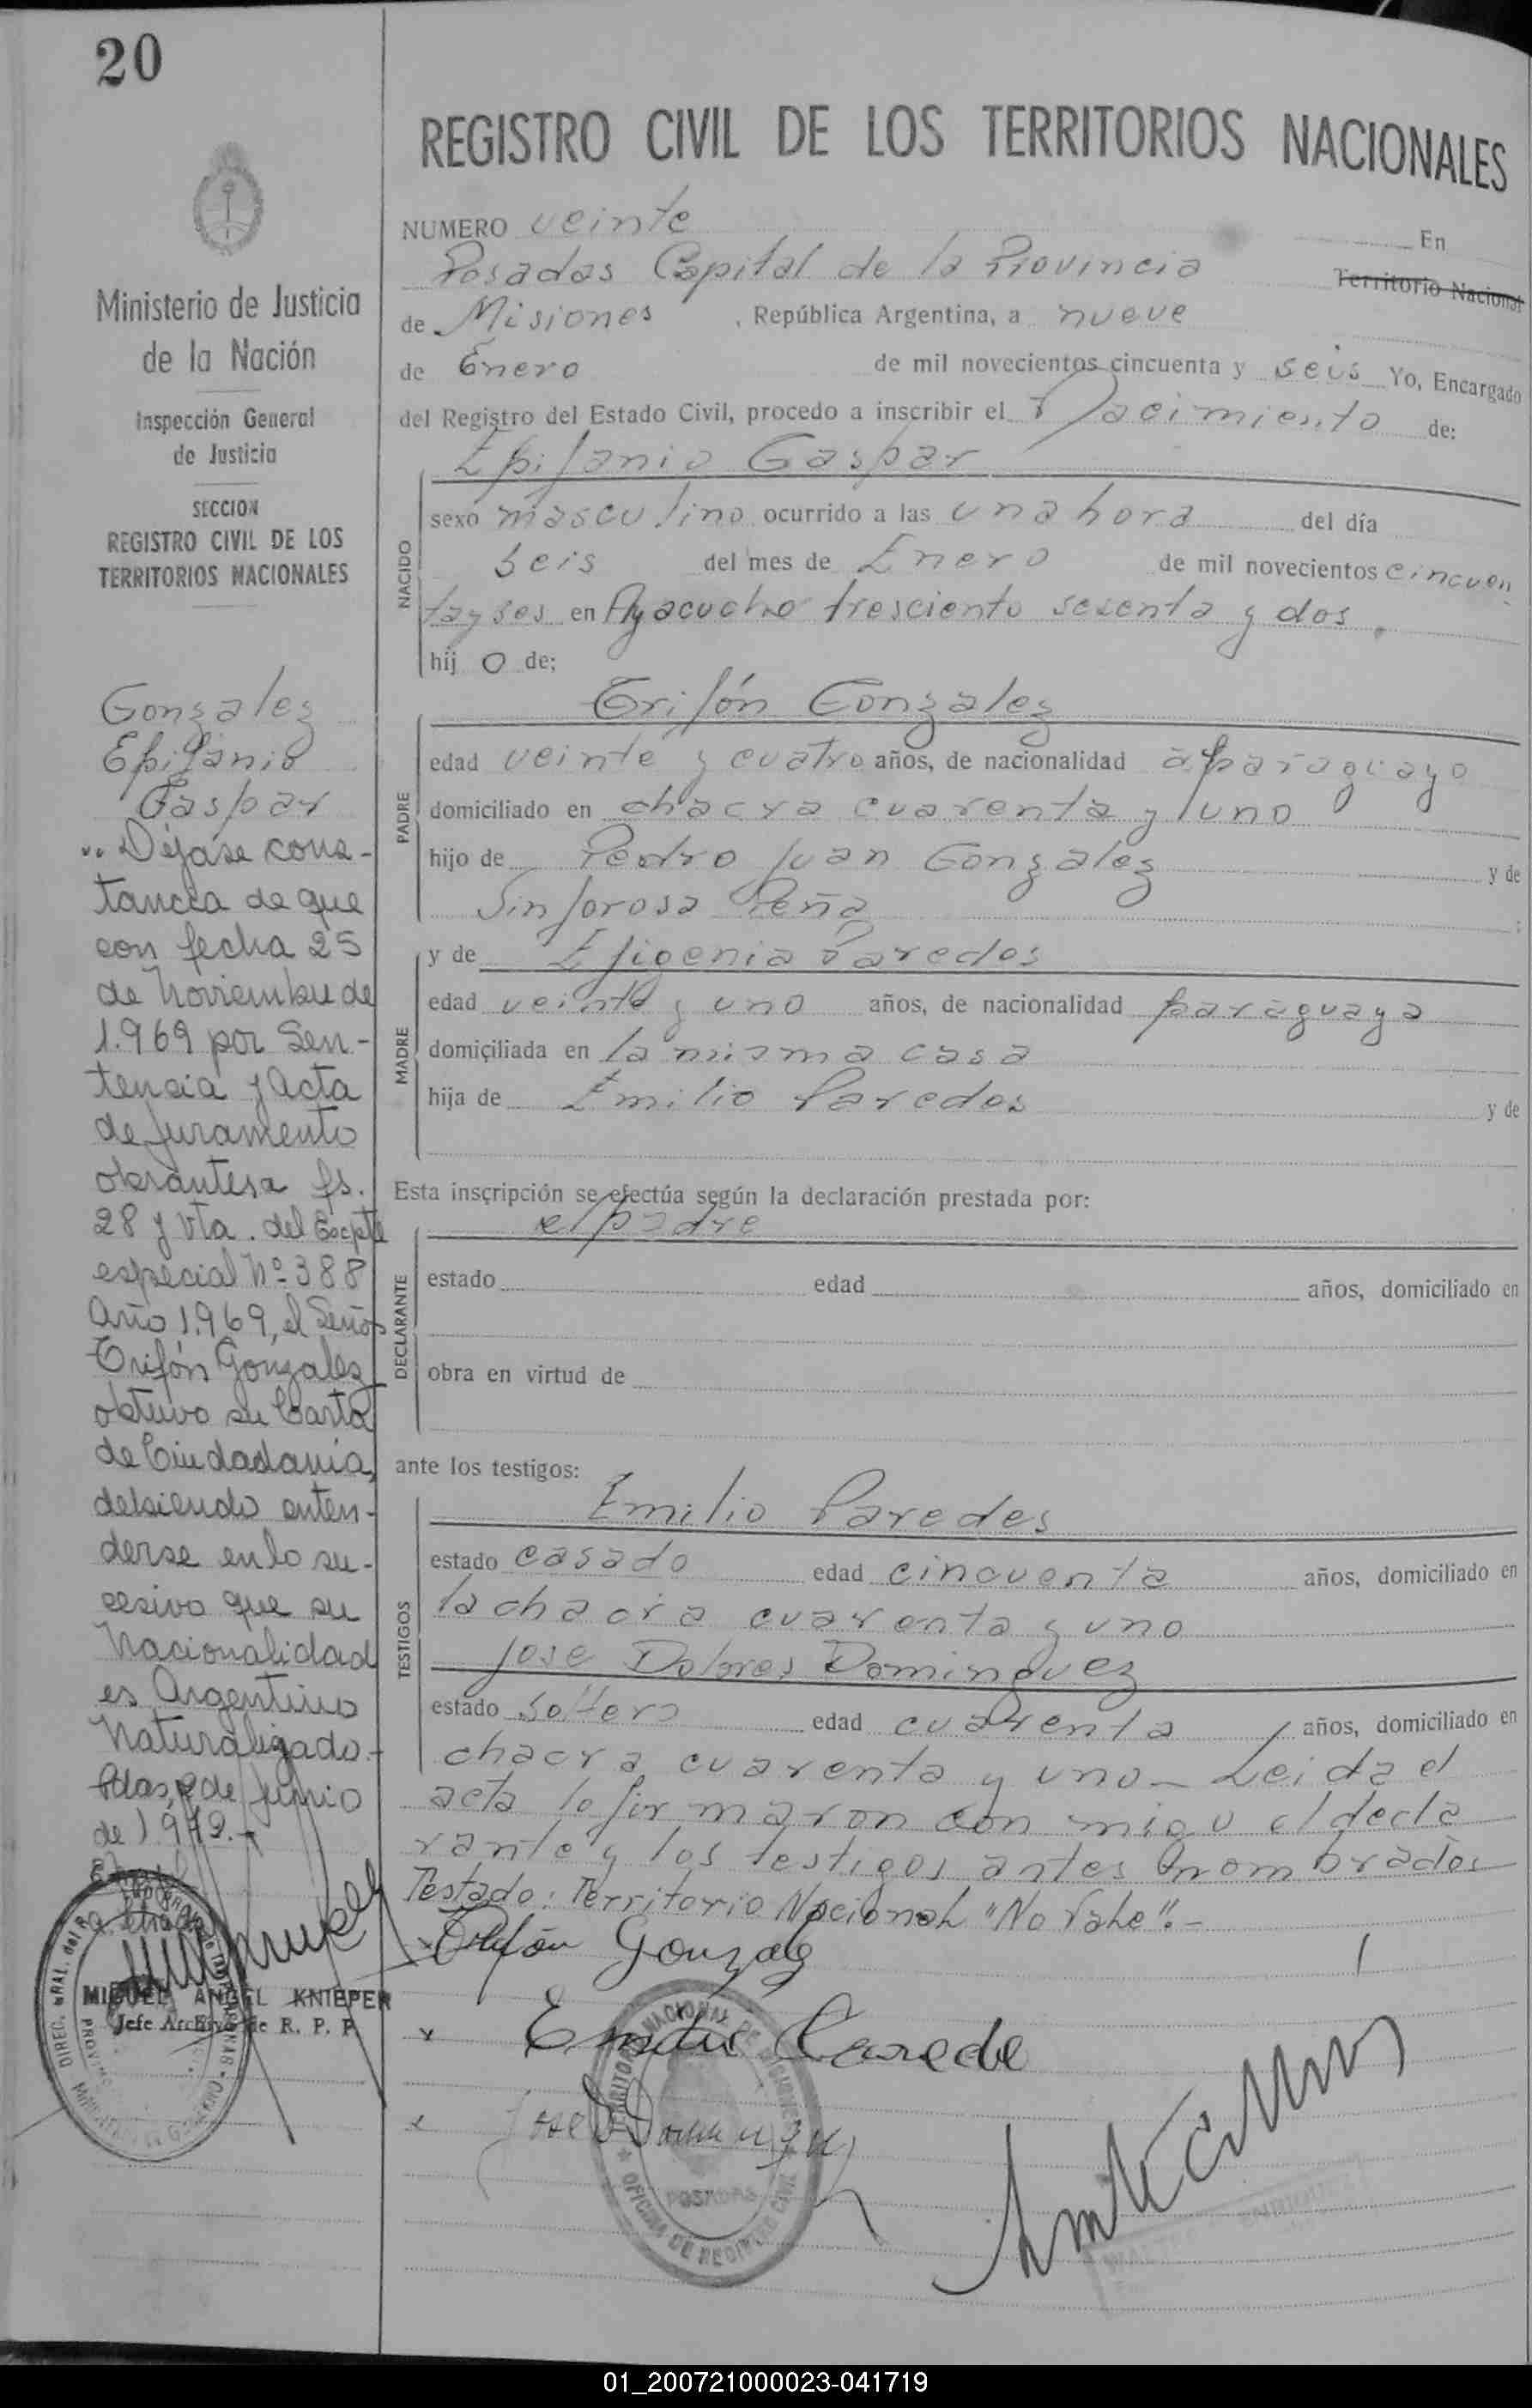 20
Ministerio de Justicia
de la Nación
Inspección General
de Justicia
SECCION
REGISTRO CIVIL DE LOS
TERRITORIOS NACIONALES
Gonzalez
Epifanio
Gaspar
Déjase cons-
tancia de que
con fecha 25
de Noviembre de
1.969 por Sen-
tencia y Acta
de Juramento
obrantes a fs.
28 y vta. del Expte
especial Nº 388
Año 1.969, el Señor
Trifón Gonzalez
obtuvo su Carta
de Ciudadania,
debiendo enten-
derse en lo su-
cesivo que su
Nacionalidad
es Argentino
Naturalizado.-
Pdas, 2 de Junio
de 19
MIGUEL ANGEL KNIEPER
Jefe Archivo de R. P. P.
REGISTRO CIVIL DE LOS TERRITORIOS NACIONALES
NUMERO veinte En
Posadas Capital de la Provincia Territorio Nacional
de Misiones , República Argentina, a nueve
de Enero de mil novecientos cincuenta y seis Yo, Encargado
del Registro del Estado Civil, procedo a inscribir el Nacimiento de:
Epifanio Gaspar
NACIDO
sexo masculino ocurrido a las una hora del día
seis del mes de Enero de mil novecientos cincuen
ta y ses en Ayacucho tresciento sesenta y dos.
hij o de:
Trifón Gonzalez
PADRE
edad veinte y cuatro años, de nacionalidad paraguayo
domiciliado en chacra cuarenta y uno
hijo de Pedro Juan Gonzalez y de
Sinforosa Peña ;
MADRE
y de Efigenia Paredes
edad veinte y uno años, de nacionalidad paraguaya
domiciliada en la misma casa
hija de Emilio Paredes y de
Esta inscripción se efectúa según la declaración prestada por:
el padre
DECLARANTE
estado edad años, domiciliado en
obra en virtud de
ante los testigos:
Emilio Paredes
TESTIGOS
estado casado edad cincuenta años, domiciliado en
la chacra cuarenta y uno
Jose Dolores Dominguez
estado soltero edad cuarenta años, domiciliado en
chacra cuarenta y uno - Leida el
acta lo firmaron con migo el decla
rante y los testigos antes nombrados
Testado: Territorio Nacional "No Vale".-
Trifón Gonzalez
Emilio Parede
Jose D Dominguez
TERRITORIO NACIONAL DE MISIONES
POSADAS
OFICINA DE REGISTRO CIVIL
01_200721000023-041719